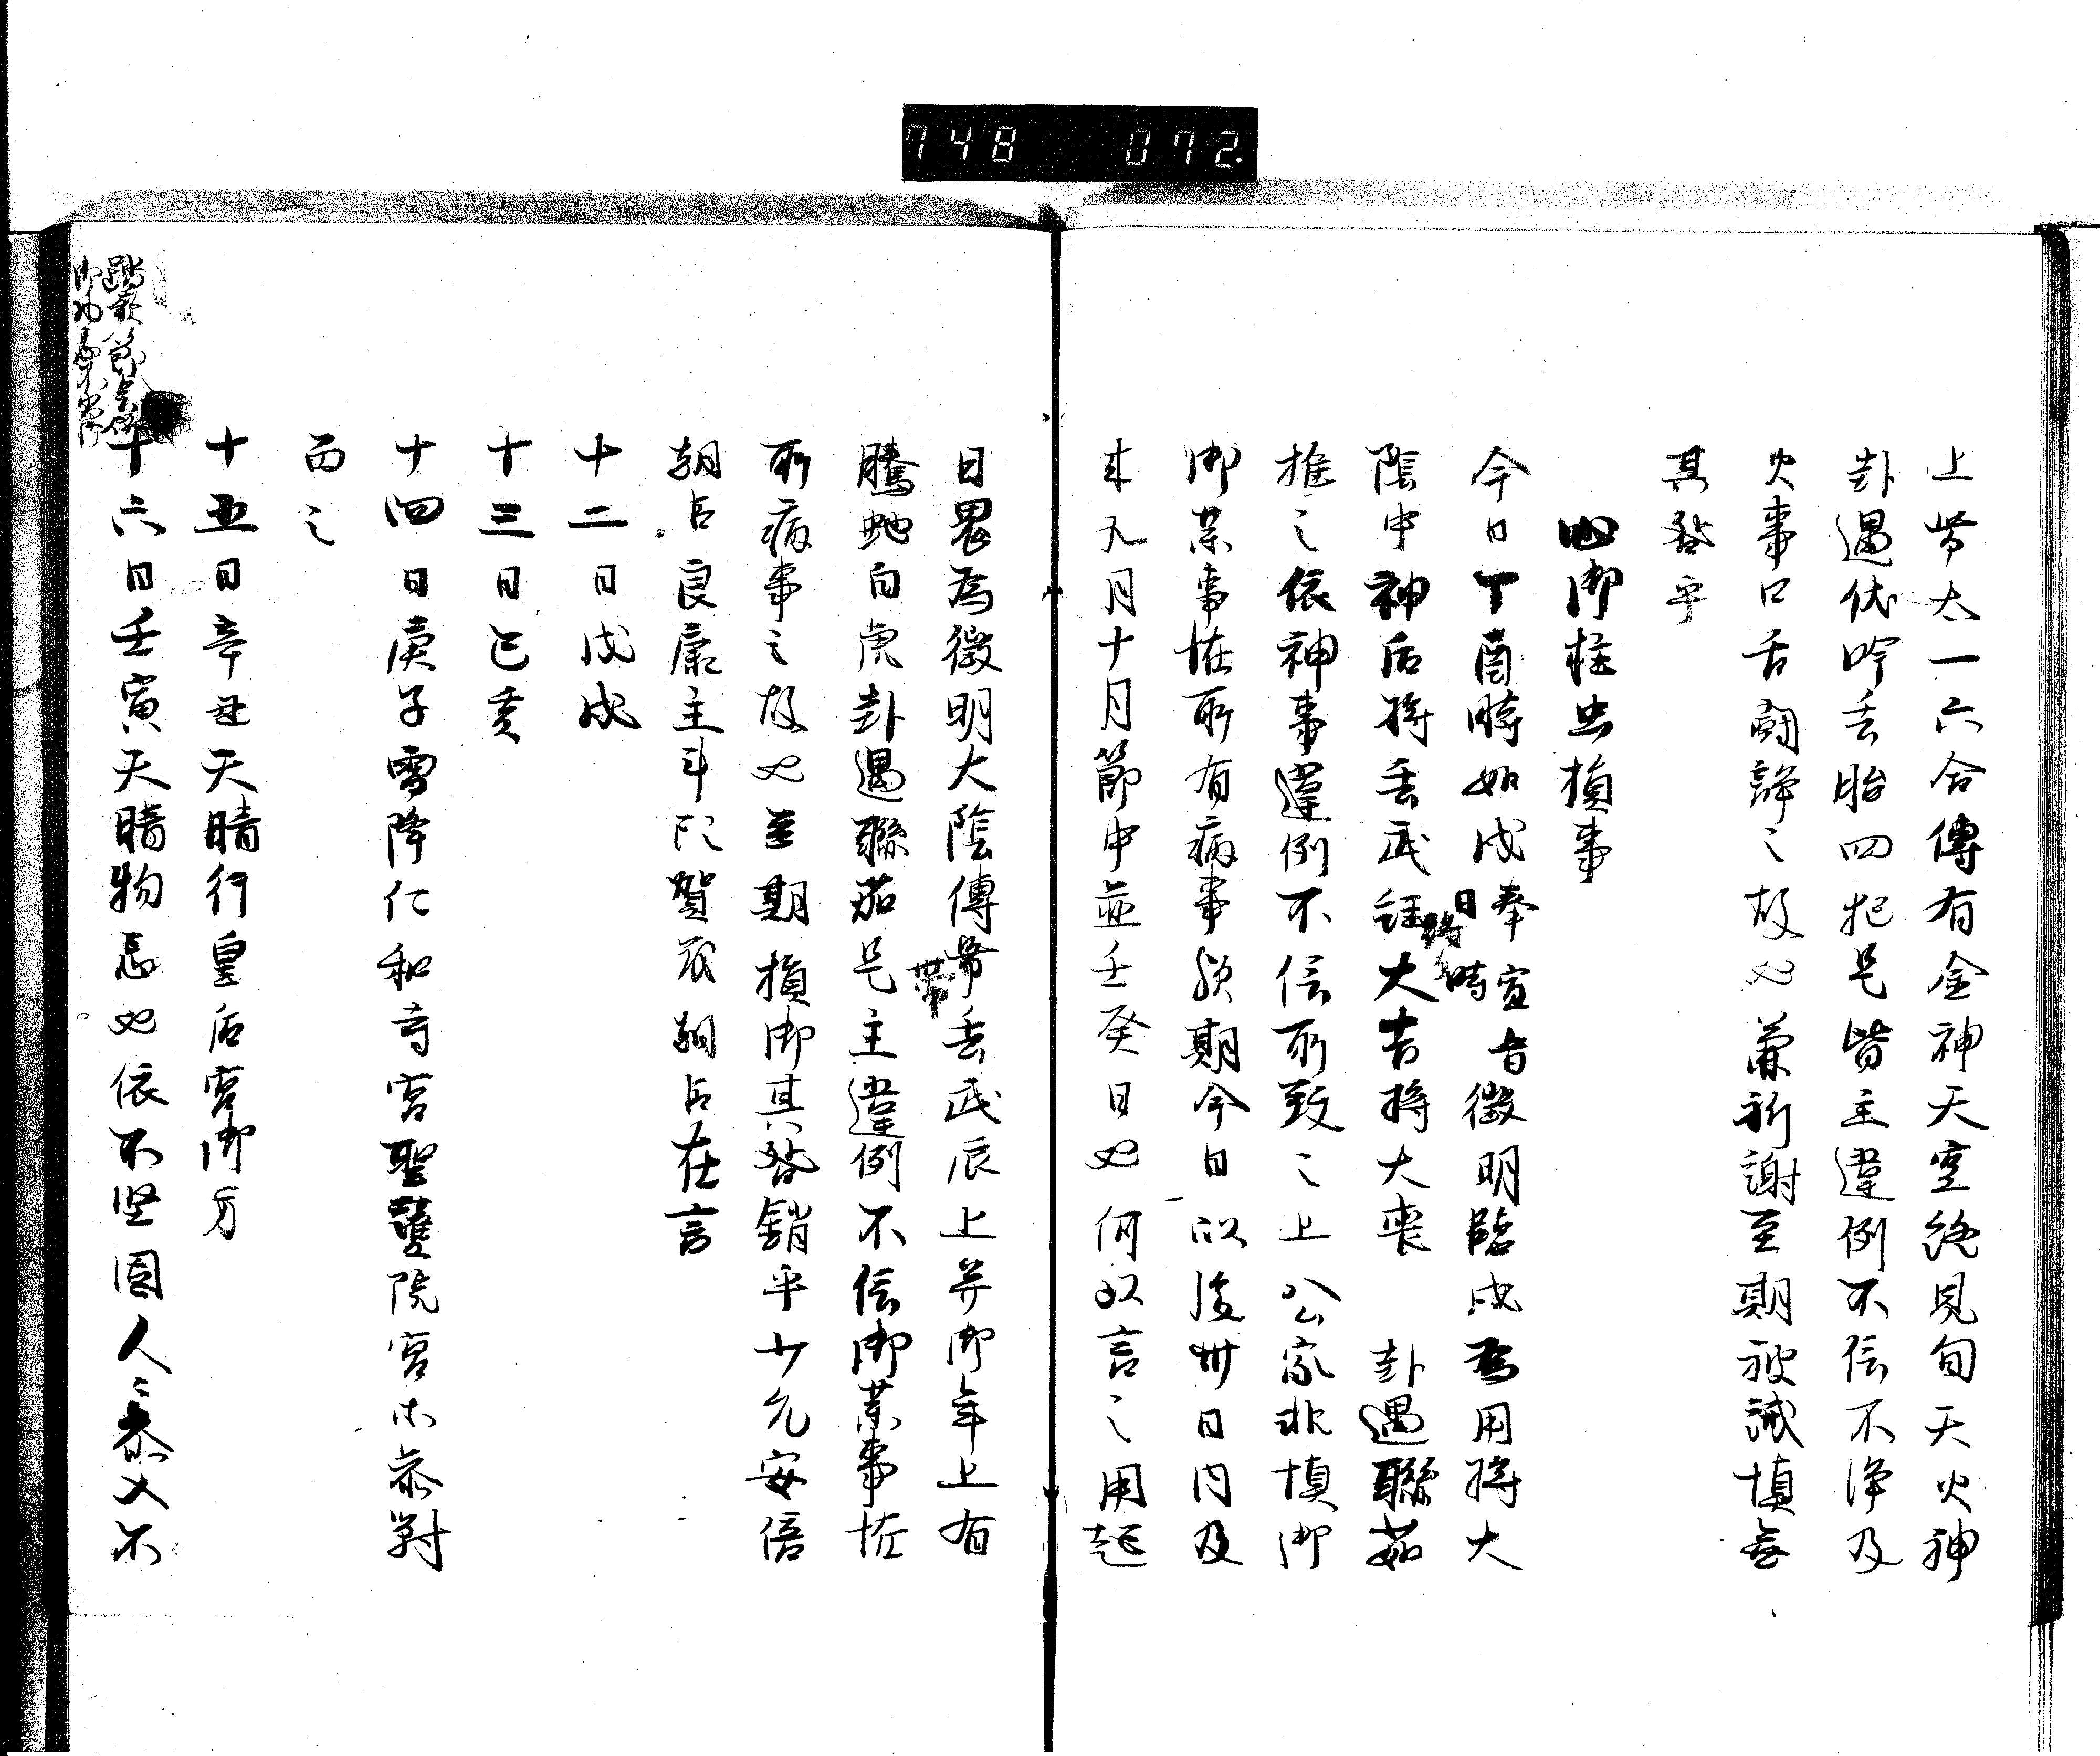 748 072.
上帯太一六合傳有金神天空終見旬天火神
卦遇伏吟玄胎四牝是皆主違例不信不浄及
火事口舌闘諍之故也兼祈謝至期被誡慎無
其咎乎
御柱虫損事
今日丁酉時加戌奉宣旨日時徴明臨戌為用将大
陰中神后将玄武終大吉将大裳 卦遇聯茹
推之依神事違例不信所致之上公家非慎御
薬事恠所有病事歟期今日以後卅日内及
来九月十月節中並壬癸日也何以言之用起
日畏為徴明大陰傳帯玄武辰上并御年上有
帯
騰虵白虎卦遇聯茹是主違例不信御薬事恠
所病事之故也至期損御其咎銷乎少允安倍
朝臣良康主計頭賀茂朝臣在言
十二日戊戌
十三日己亥
十四日庚子雪降仁和寺宮聖護院宮木参対
面之
十五日辛丑天晴行皇后宮御方
踏歌節会
御物忌
十六日壬寅天晴物忌也依不堅固人々参入不